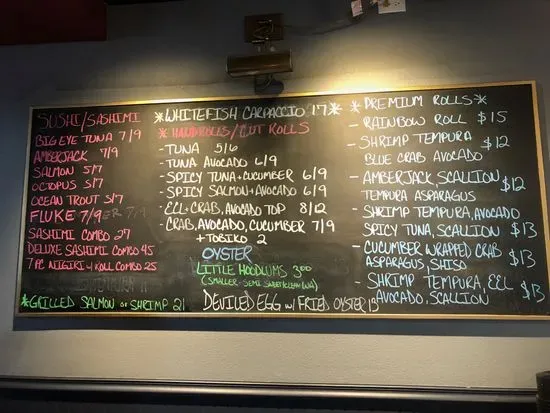 SUSHI/SASHIMI
BIG EYE TUNA 7/9
AMBERJACK 7/9
SALMON 5/7
OCTOPUS 5/7
OCEAN TROUT 5/7
FLUKE 7/9
SASHIMI COMBO 27
DELUXE SASHIMI COMBO 45
7 PC NIGIRI + ROLL COMBO 25
*GRILLED SALMON or SHRIMP 21
*WHITEFISH CARPACCIO 17*
*HANDROLLS/CUT ROLLS
- TUNA 5/6
TUNA AVOCADO 6/9
- SPICY TUNA + CUCUMBER 6/9
- SPICY SALMON + AVOCADO 6/9
- EEL + CRAB, AVOCADO TOP 8/12
- CRAB, AVOCADO, CUCUMBER 7/9
+ TOBIKO 2
OYSTER
LITTLE HOODLUMS 3.00
(SMALLER-SEMI SWEET/CLEAN WA)
DEVILED EGG w/ FRIED OYSTER 13
*PREMIUM ROLLS*
- RAINBOW ROLL $15
- SHRIMP TEMPURA $12
BLUE CRAB AVOCADO
- AMBERJACK, SCALLION $12
TEMPURA ASPARAGUS
- SHRIMP TEMPURA, AVOCADO
SPICY TUNA, SCALLION $13
- CUCUMBER WRAPPED CRAB $13
ASPARAGUS, SHISO
- SHRIMP TEMPURA, EEL $13
AVOCADO, SCALLION